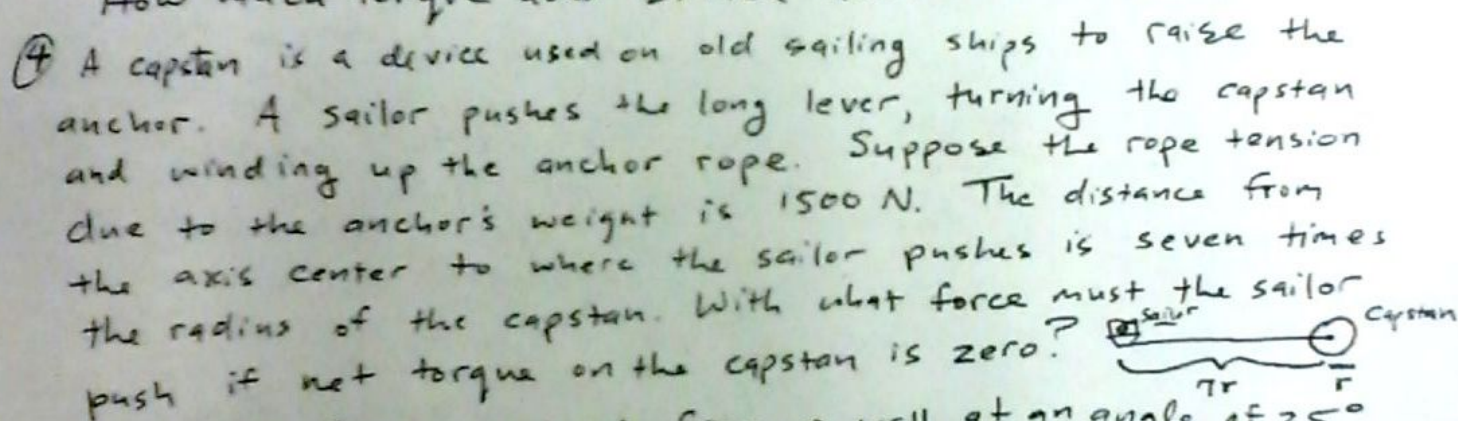 ④ A capstan is a device used on old sailing ships to raise the
anchor. A sailor pushes the long lever, turning the capstan
and winding up the anchor rope. Suppose the rope tension
due to the anchor's weight is 1500 N. The distance from
the axis center to where the sailor pushes is seven times
the radius of the capstan. With what force must the sailor
push if net torque on the capstan is zero?
Sailor
Capstan
7r
r
at an angle of 25°